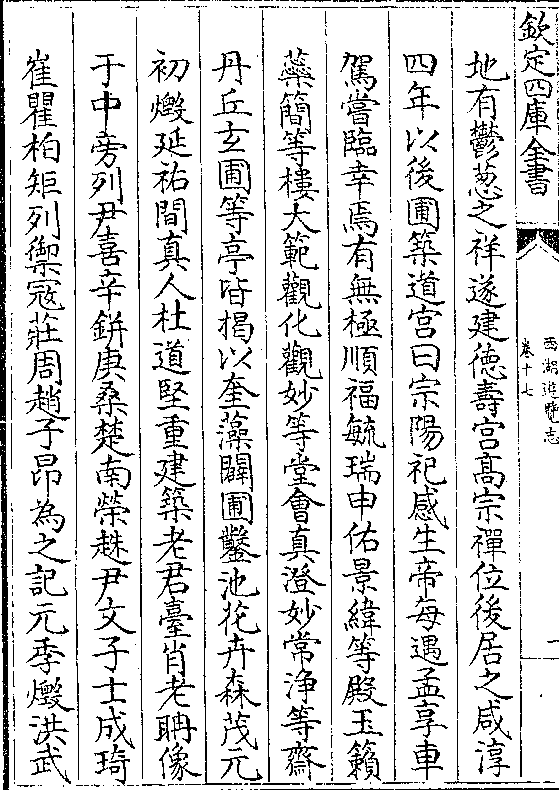 欽定四庫全書
西湖遊覽志
卷十七
一
地有鬱葱之祥遂建德壽宫髙宗禪位後居之咸淳
四年以後圃築道宫曰宗陽祀感生帝每遇孟享車
駕嘗臨幸焉有無極順福毓瑞申佑景緯等殿玉籟
蘂簡等樓大範觀化觀妙等堂會真澄妙常浄等齋
丹丘玄圃等亭皆揭以奎藻闢圃鑿池花卉森茂元
初燬延祐間真人杜道堅重建築老君臺肖老聃像
于中旁列尹喜辛鈃庚桑楚南榮趎尹文子士成琦
崔瞿柏矩列禦寇莊周趙子昂為之記元季燬洪武